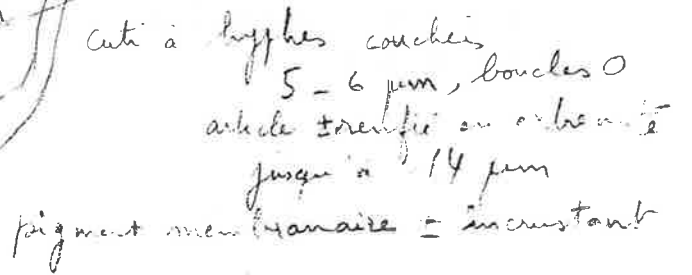 cuti à hyphes couchées
5 - 6 µm, boucles 0
article ± renflé en extrémité
jusqu'à 14 µm
pigment membranaire ± incrustant